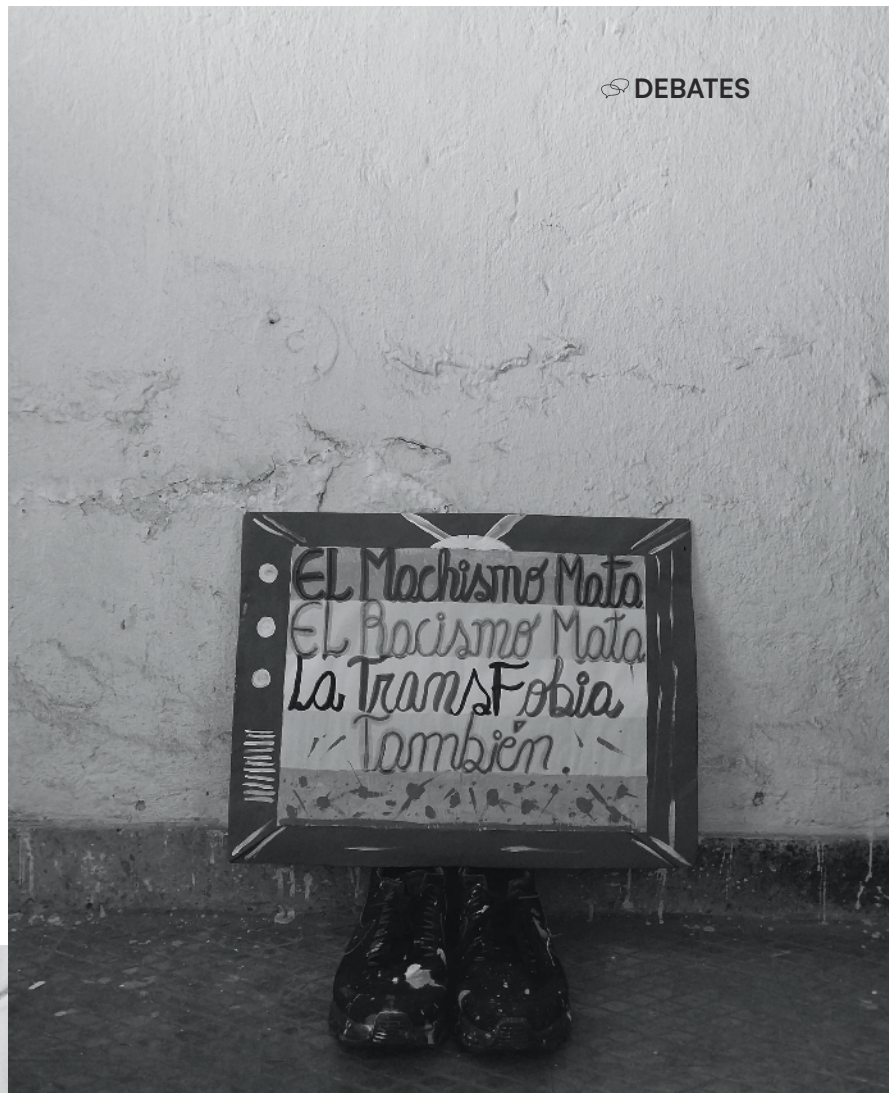 DEBATES
EL Machismo Mata
EL Racismo Mata
La TransFobia
También.